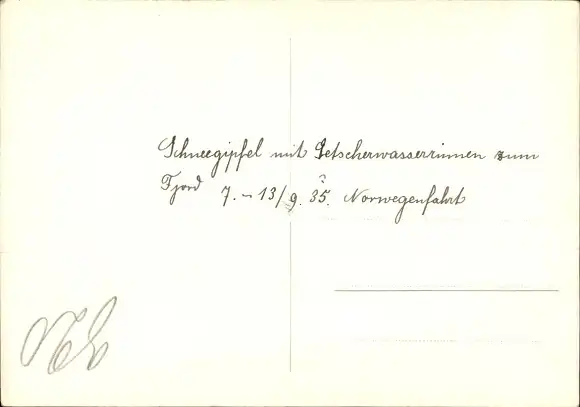 Schneegipfel mit Getscherwasserrinnen zum
Fjord 7. – 13/9. 35. Norwegenfahrt